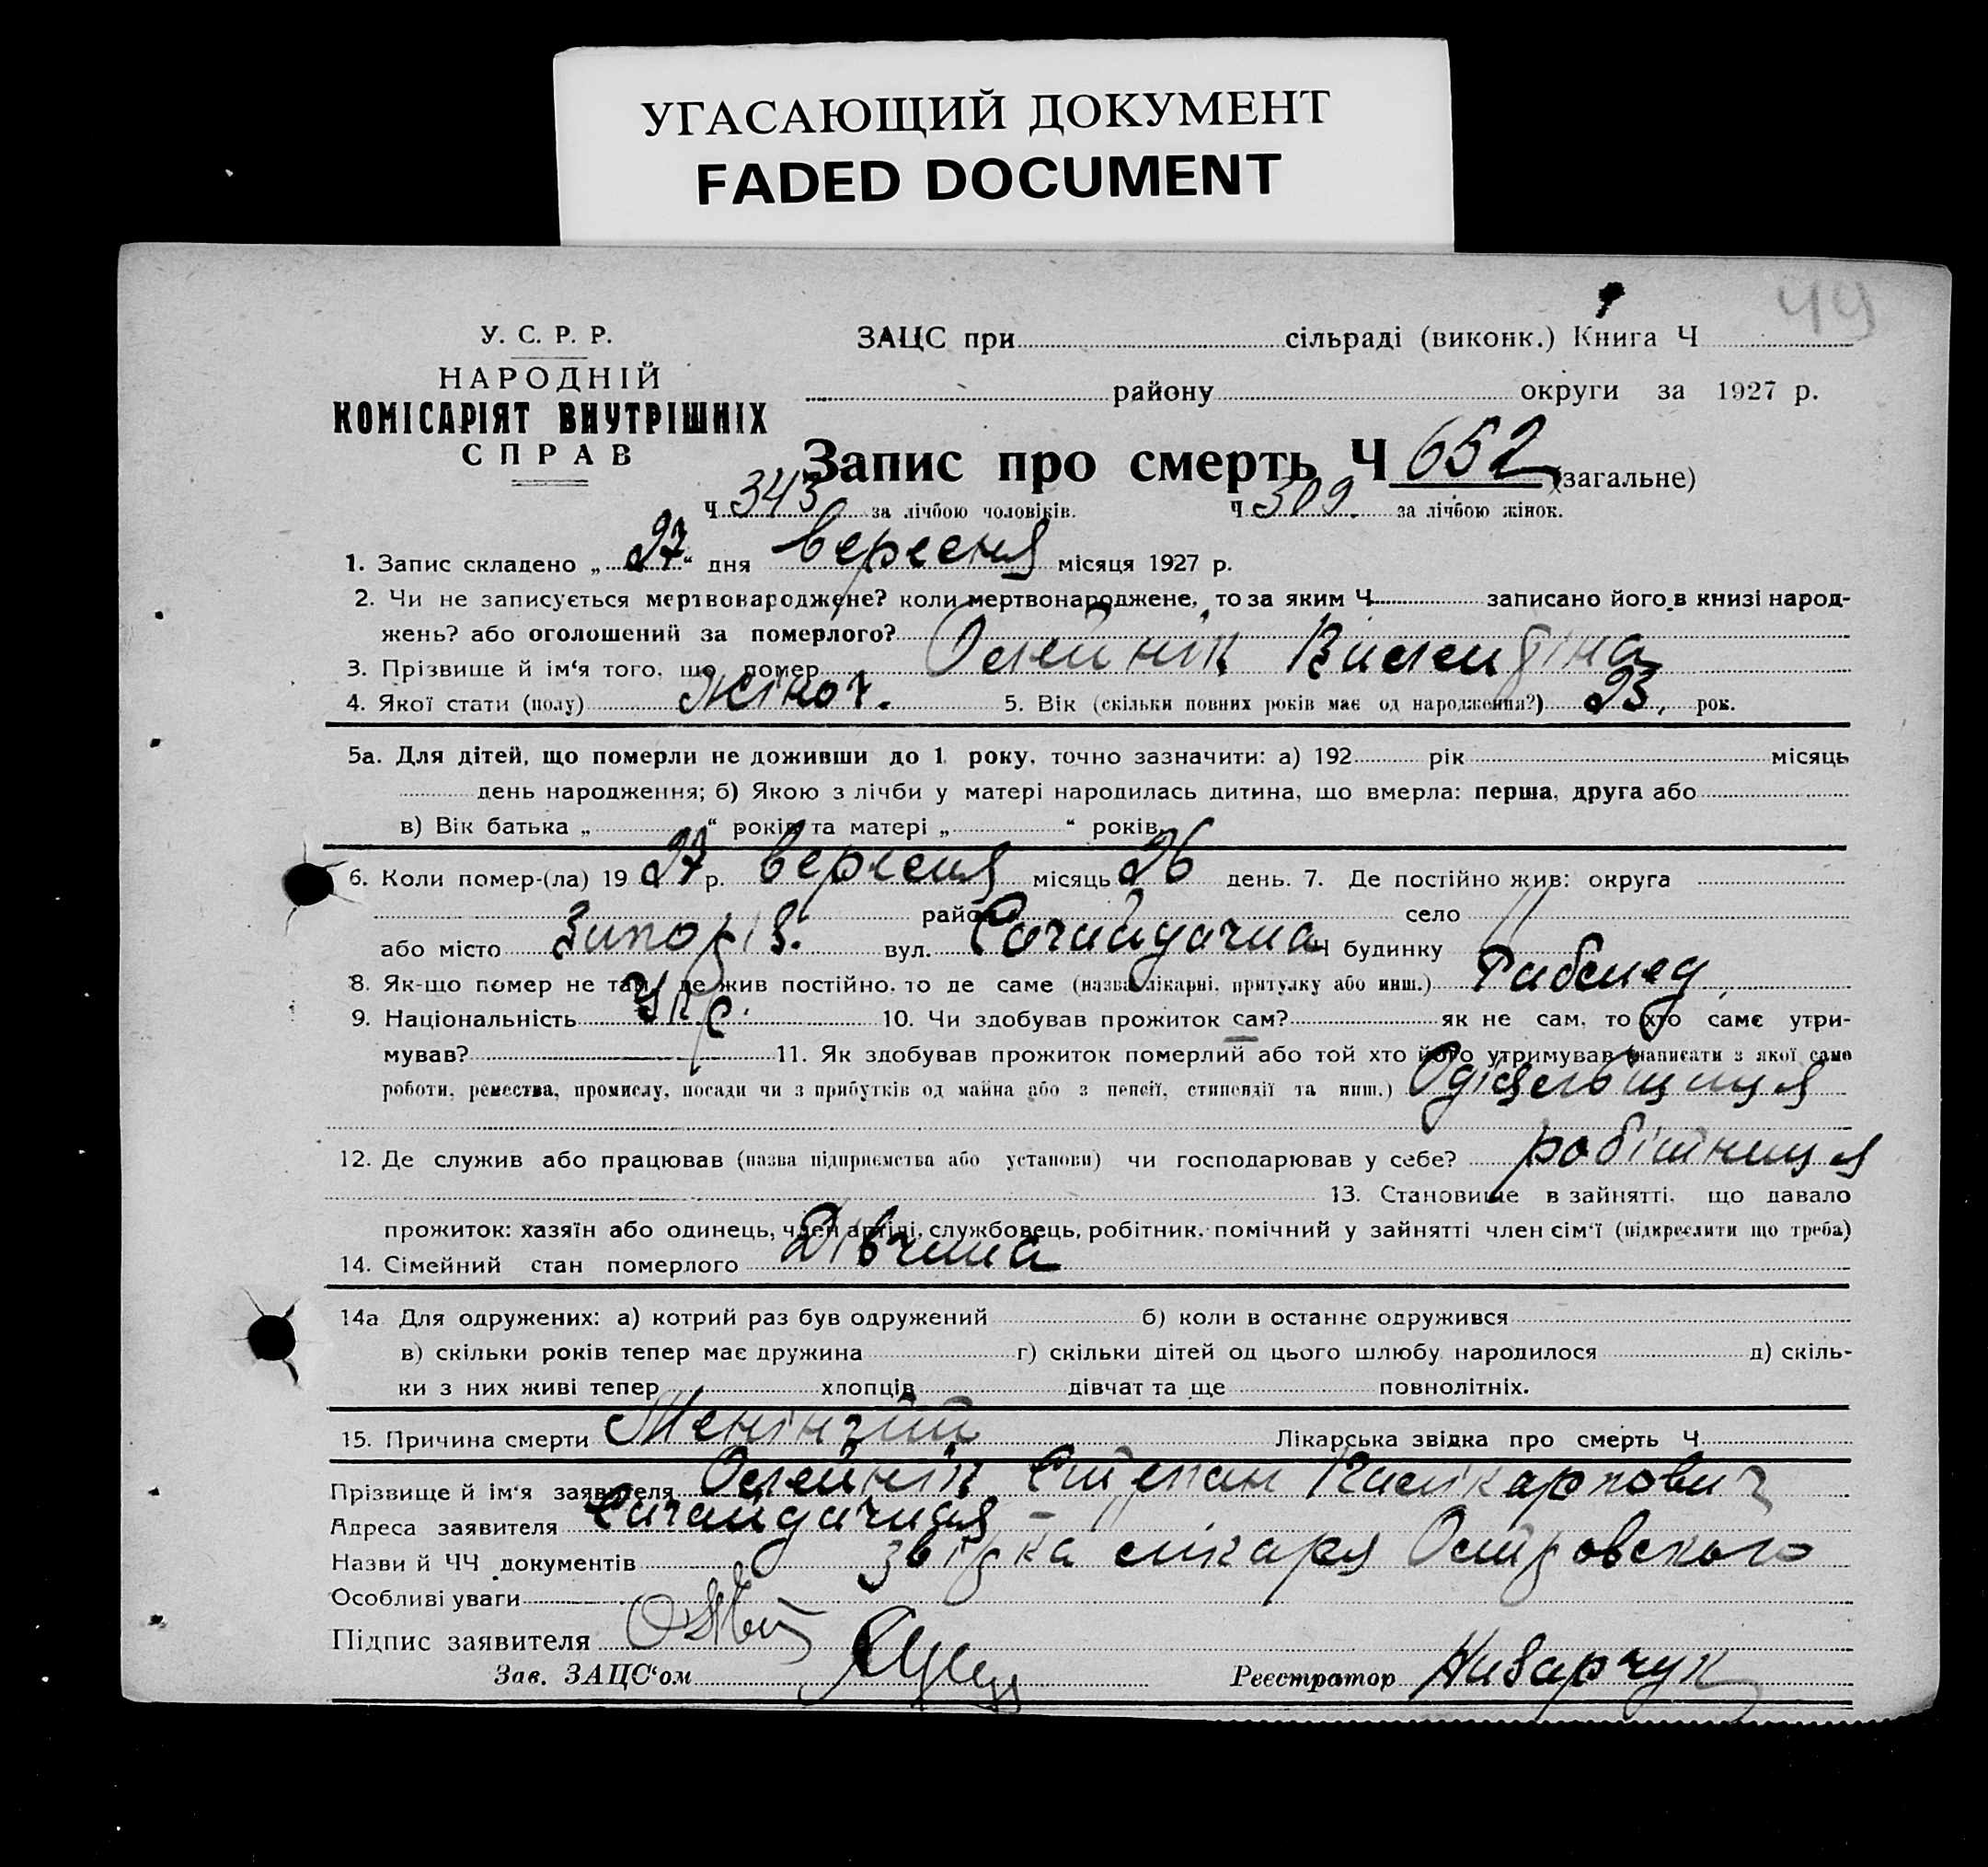 УГАСАЮЩИЙ ДОКУМЕНТ
FADED DOCUMENT
49
У. С. Р. Р.
НАРОДНІЙ
КОМІСАРІЯТ ВНУТРІШНІХ
СПРАВ
ЗАЦС при сільраді (виконк.) Книга Ч
району округи за 1927 р.
Запис про смерть Ч 652 (загальне)
Ч 343 за лічбою чоловіків. Ч 309. за лічбою жінок.
1. Запис складено „27“ дня вересня місяця 1927 р.
2. Чи не записується мертвонароджене? коли мертвонароджене, то за яким Ч записано його в книзі народ-
жень? або оголошений за померлого?
3. Прізвище й ім‘я того, що помер Олейнік
4. Якої стати (полу) жіноч. 5. Вік (скільки повних років має од народження?) 23, рок.
5а. Для дітей, що померли не доживши до 1 року, точно зазначити: а) 192 рік місяць
день народження; б) Якою з лічби у матері народилась дитина, що вмерла: перша, друга або
в) Вік батька „ “ років та матері „ “ років.
6. Коли помер-(ла) 1927 р. вересня місяць 26 день. 7. Де постійно жив: округа
район село
або місто вул. Сагайдачна Ч будинку
8. Як-що помер не там, де жив постійно, то де саме (назва лікарні, притулку або инш.)
9. Національність Укр. 10. Чи здобував прожиток сам? як не сам, то хто саме утри-
мував? 11. Як здобував прожиток померлий або той хто його утримував (написати з якої само
роботи, ремества, промислу, посади чи з прибутків од майна або з пенсії, стипендії та инш.)
12. Де служив або працював (назва підприємства або установи) чи господарював у себе? робітниця
13. Становище в зайнятті, що давало
прожиток: хазяїн або одинець, член артілі, службовець, робітник, помічний у зайнятті член сім‘ї (підкреслити що треба)
14. Сімейний стан померлого Дівчина
14а Для одружених: а) котрий раз був одружений б) коли в останнє одружився
в) скільки років тепер має дружина г) скільки дітей од цього шлюбу народилося д) скіль-
ки з них живі тепер хлопців дівчат та ще повнолітніх.
15. Причина смерти Менінгит Лікарська звідка про смерть Ч
Прізвище й ім‘я заявителя Олейнік Степан Полікарпович
Адреса заявителя Сагайдачная
Назви й ЧЧ документів звідка лікаря Островского
Особливі уваги
Підпис заявителя
Зав. ЗАЦС‘ом Реєстратор